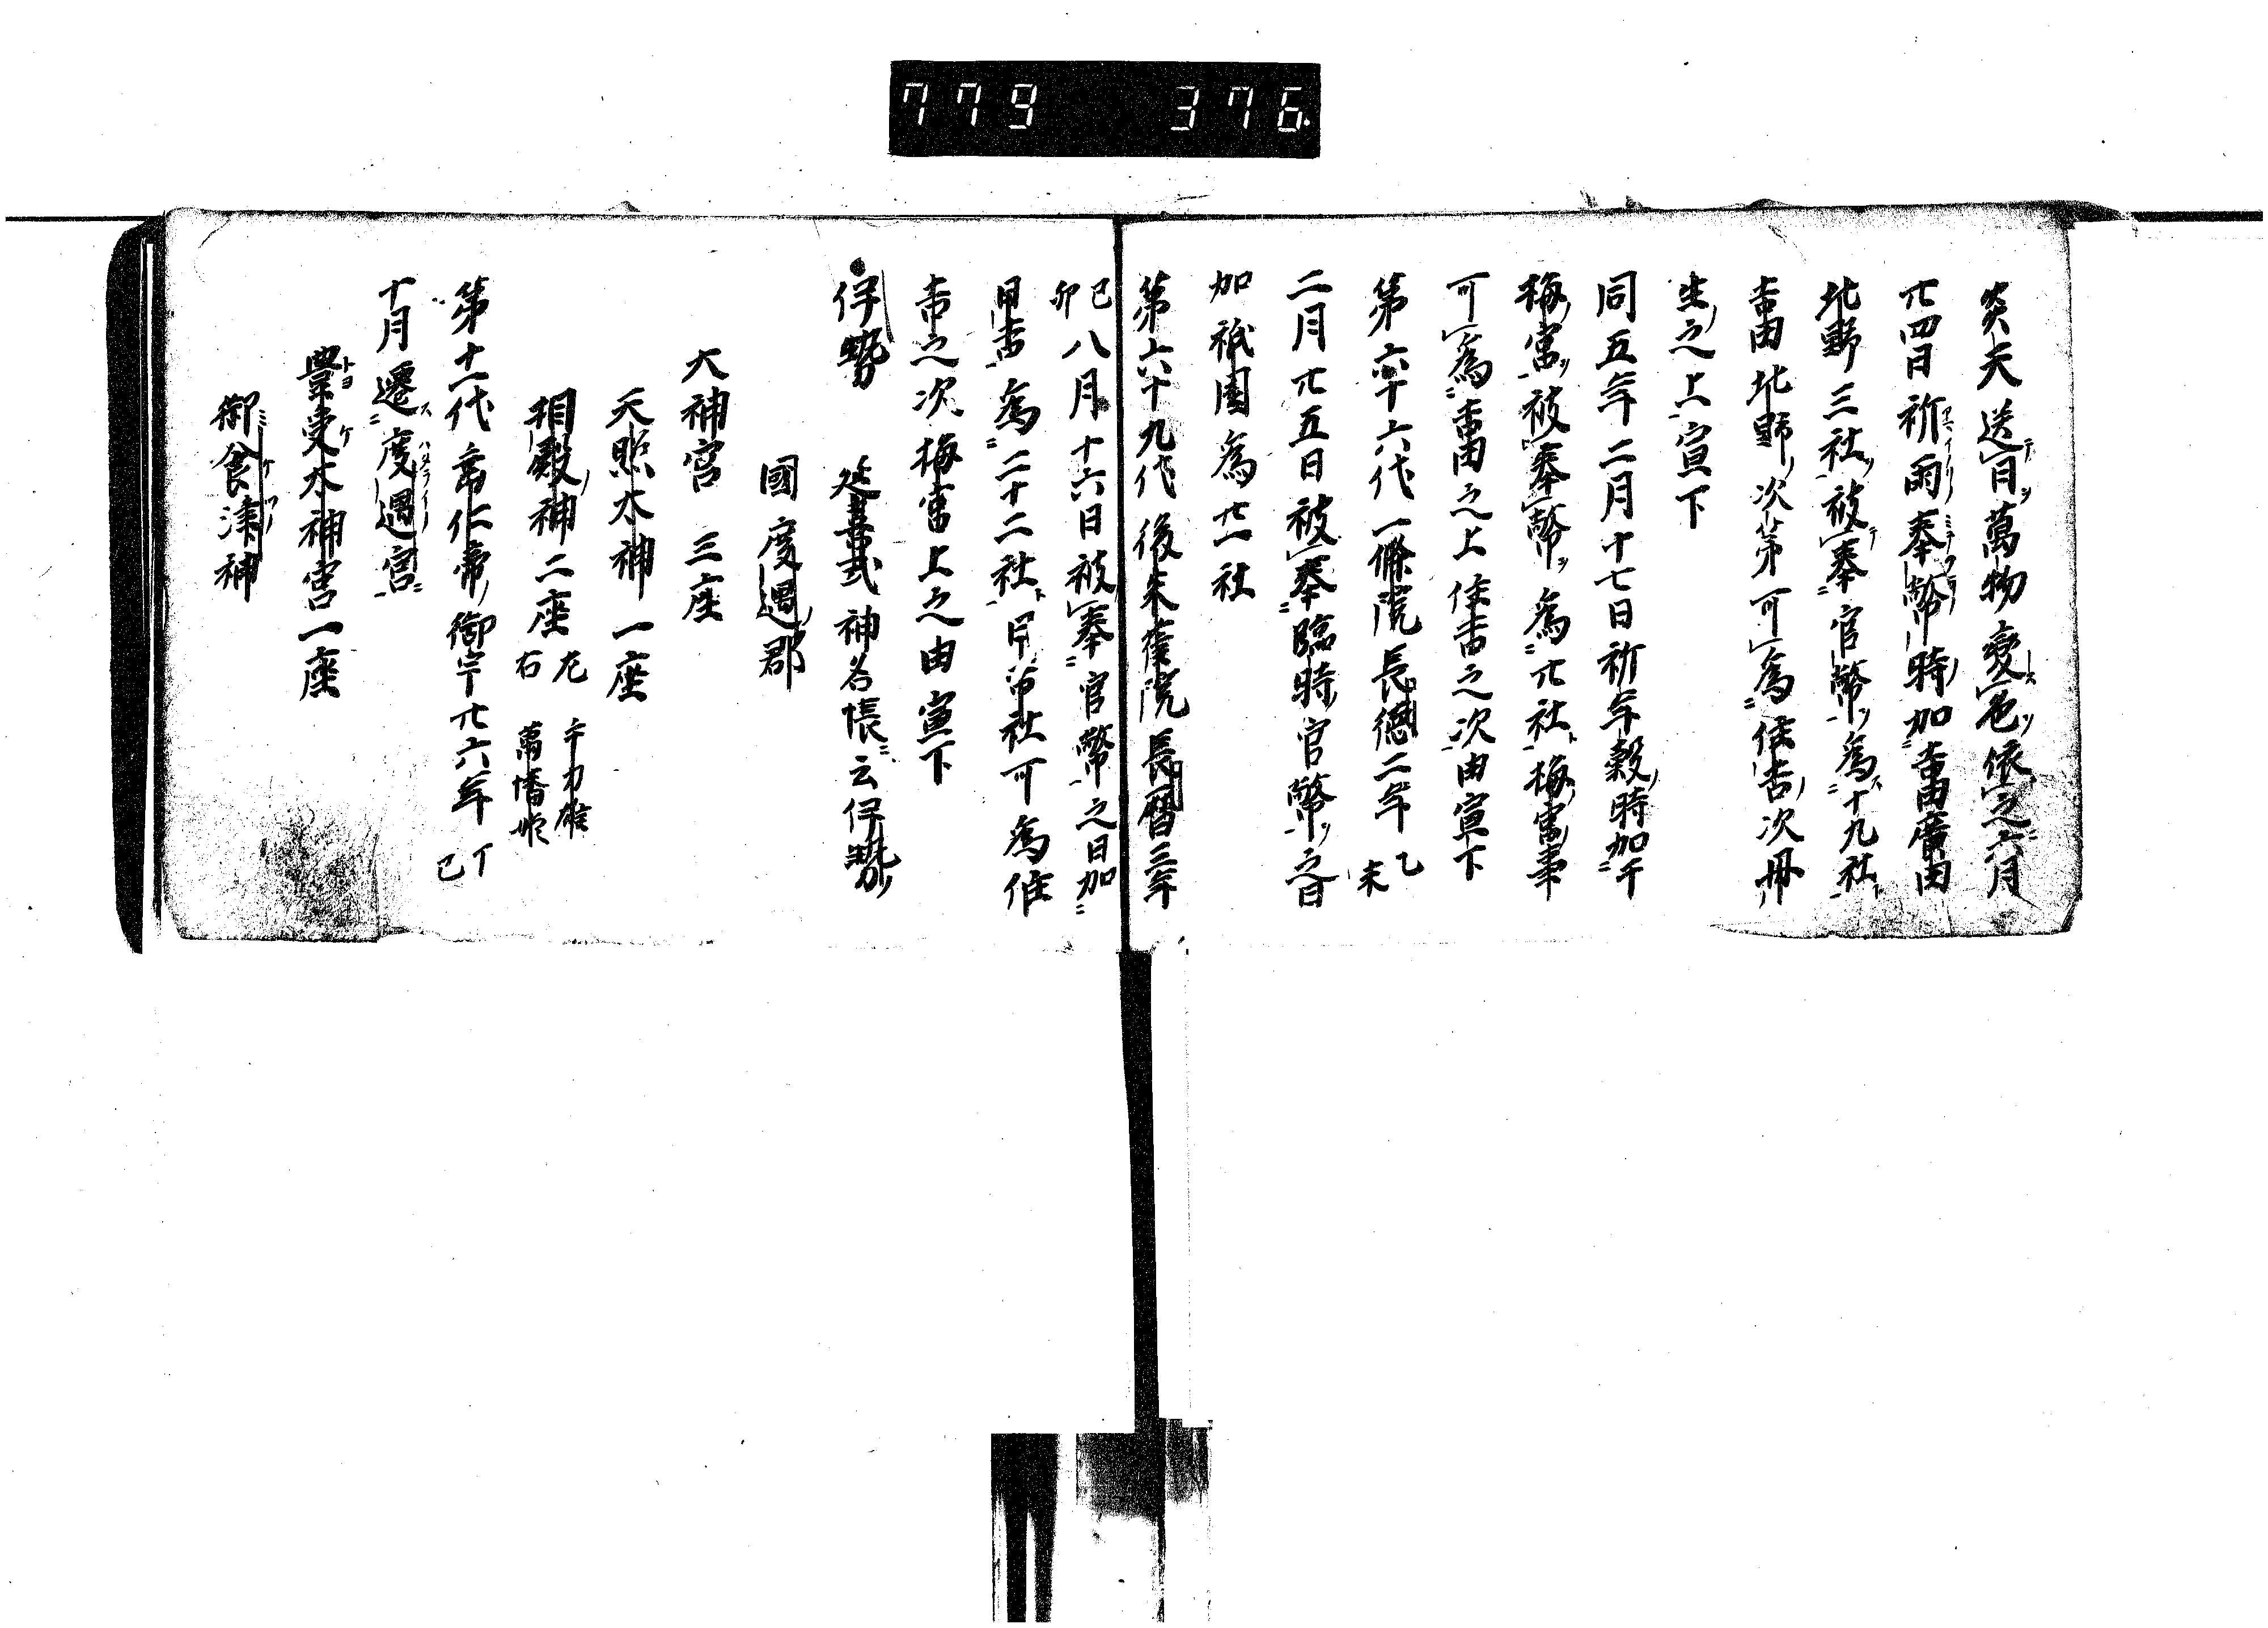 779 376
炎天送日萬物變色依之六月
廿四日祈雨奉幣時加吉田廣田
北野三社被奉官幣為十九社
吉田北野次第可為住吉次丹
生之上宣下
同五年二月十七日祈年穀時加
梅宮被奉幣為廿社梅宮事
可為吉田之上住吉之次由宣下
第六十六代一條院長德二年乙未
二月廿五日被奉臨時官幣之日
加祇園為廿一社
第六十九代後朱雀院長曆三年
己卯八月十六日被奉官幣之日加
日吉為二十二社日吉社可為住
吉之次梅宮上之由宣下
伊勢 延喜式神名帳云伊勢
國度遇郡
大神宮 三座
天照大神一座
相殿神二座 左 手力雄 右 萬幡姬
第十一代垂仁帝御宇廿六年丁巳
十月遷度遇宮
豐受大神宮一座
御食津神